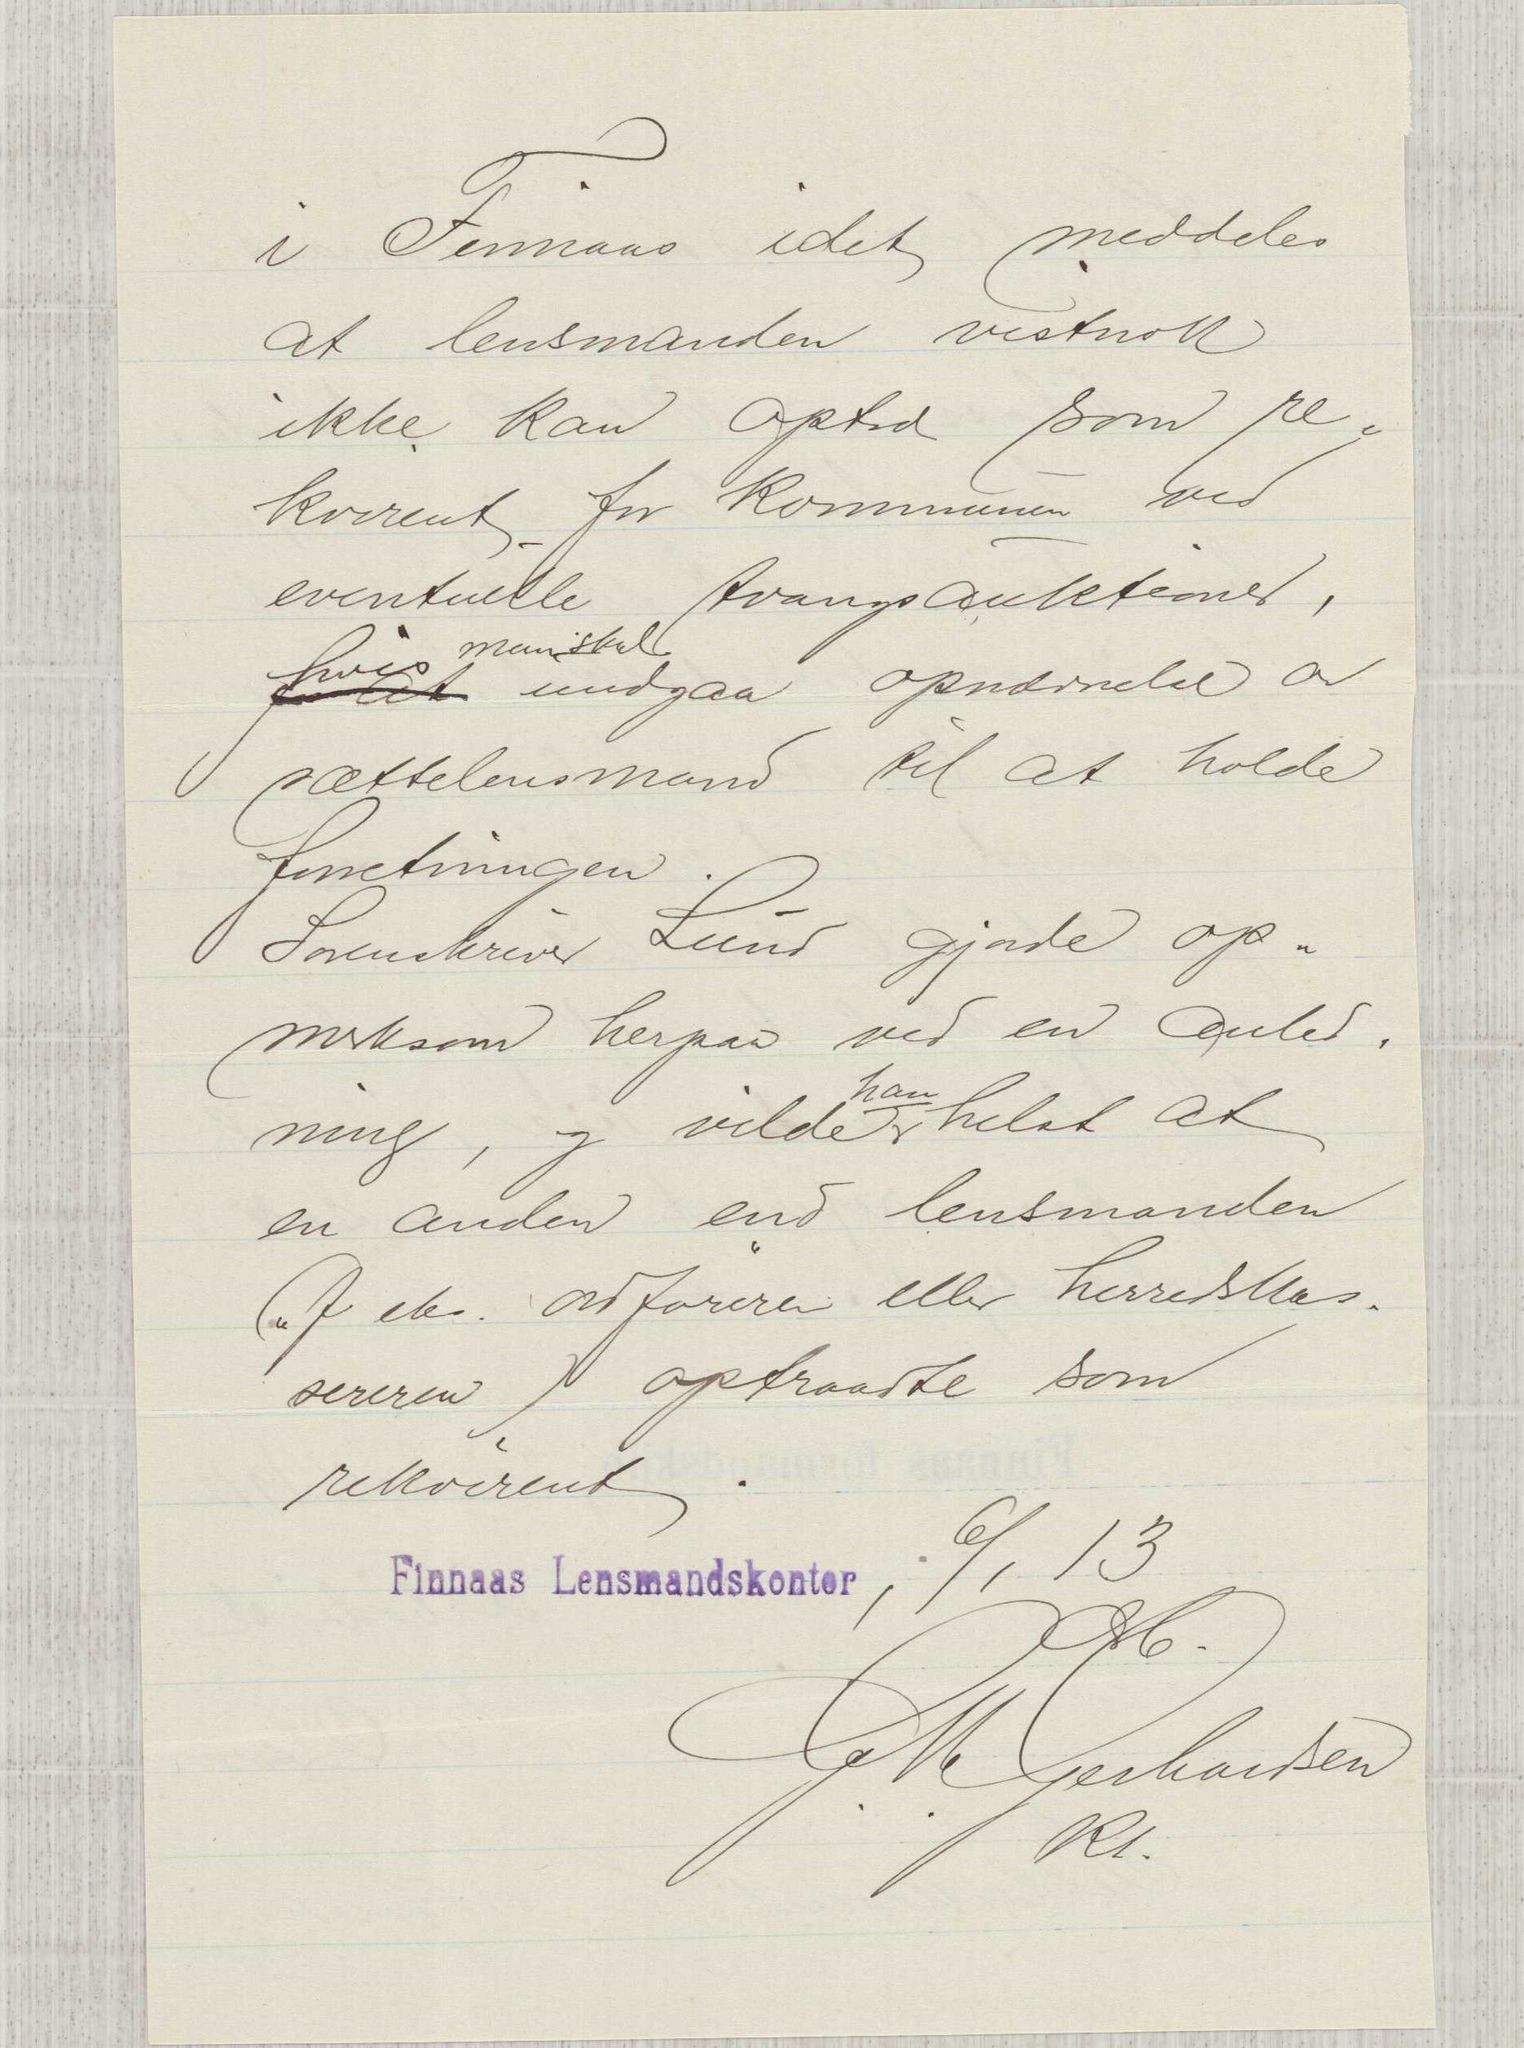 i Finnaas idet meddeles
at lensmanden vistnok
ikke kan optræ som re-
kvirent for kommunen ved
eventuelle tvangsauktioner,
hvis man skal
for at undgaa opnævnelse av
sættelensmand til at holde
forretningen.
Sorenskriver Lund gjorde op-
merksom herpaa ved en anled-
ning, og vilde han helst at
en anden end lensmanden
(f eks. ordføreren eller herredskas-
sereren) optraadte som
rekvirent.
Finnaas Lensmandskontor, 6/1 13
G. M. Gerhardsen